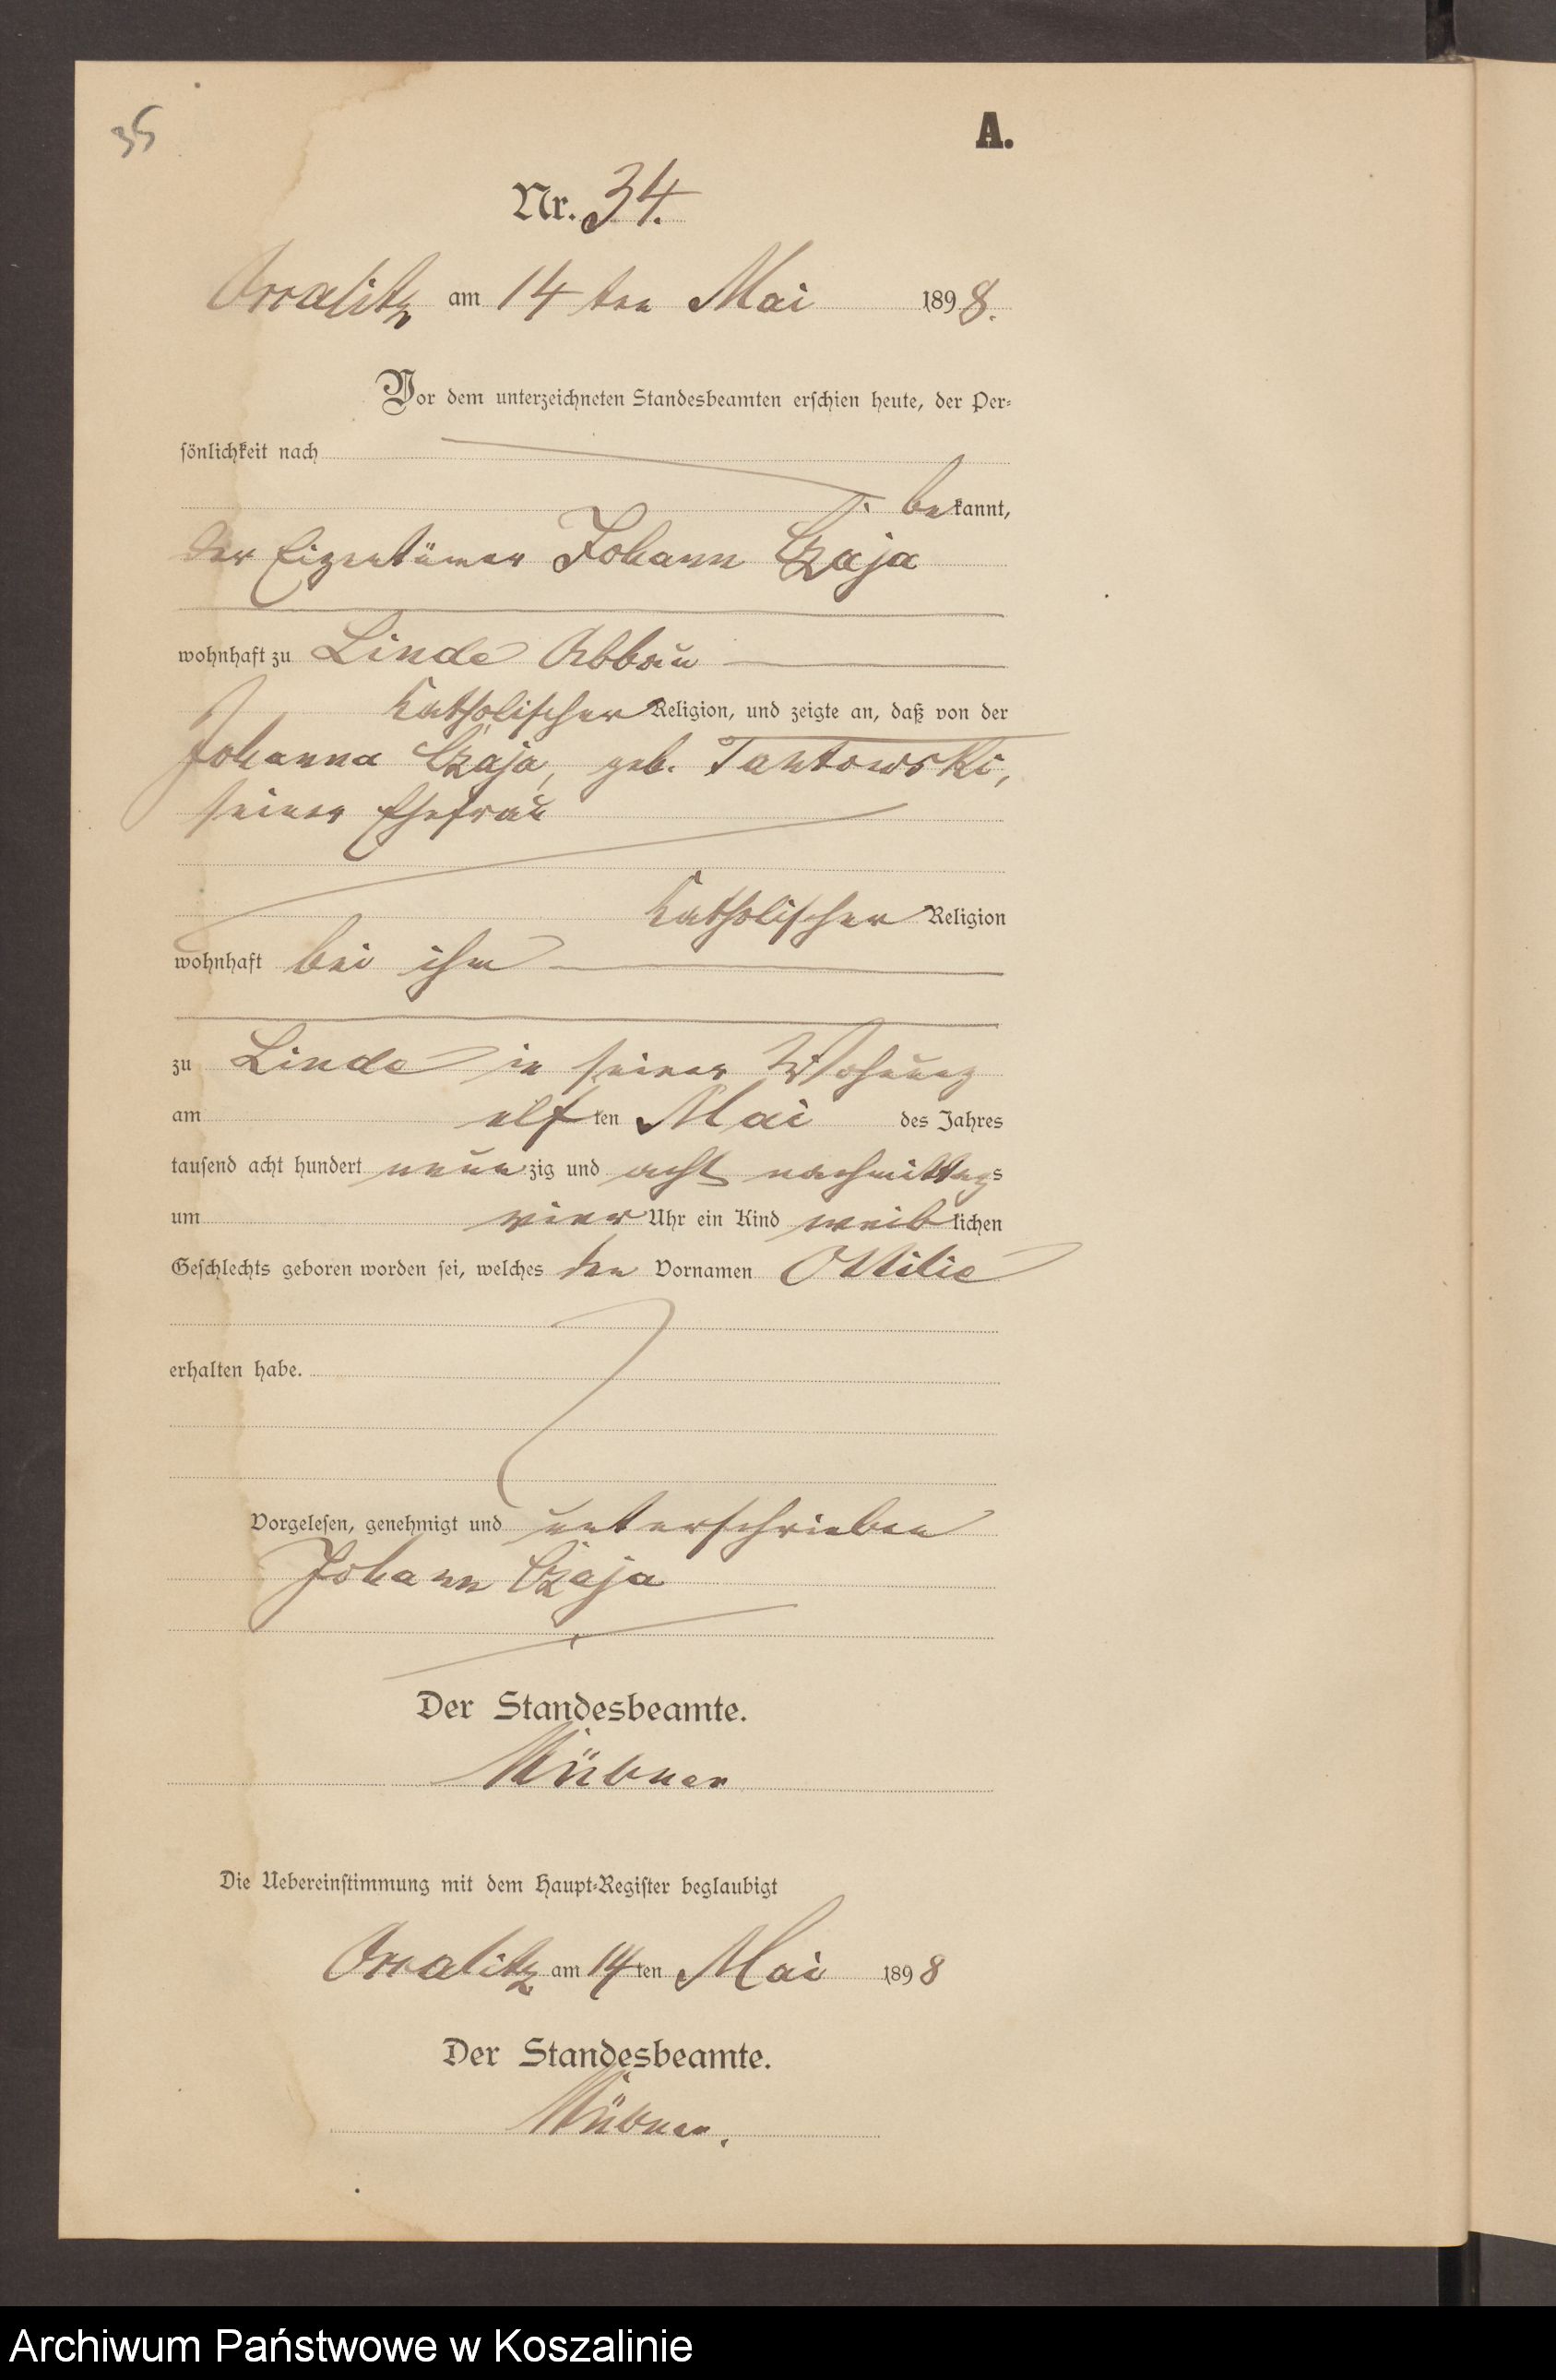 35
A.
Nr. 34.
am 14 ten Mai 1898.
Vor dem unterzeichneten Standesbeamten erschien heute, der Per-
sönlichkeit nach
bekannt,
der Eigentümer Johann Czaja
wohnhaft zu Linde Abbau
katholischer Religion, und zeigte an, daß von der
Johanna Czaja, geb. Tantowski,
seiner Ehefrau
katholischer Religion
wohnhaft bei ihm
zu Linde in seiner Wohnung
am elf ten Mai des Jahres
tausend acht hundert neunzig und acht nachmittags
um vier Uhr ein Kind weiblichen
Geschlechts geboren worden sei, welches den Vornamen Ottilie
erhalten habe.
Vorgelesen, genehmigt und unterschrieben
Johann Czaja
Der Standesbeamte.
Die Uebereinstimmung mit dem Haupt-Register beglaubigt
am 14 ten Mai 1898
Der Standesbeamte.
Archiwum Państwowe w Koszalinie